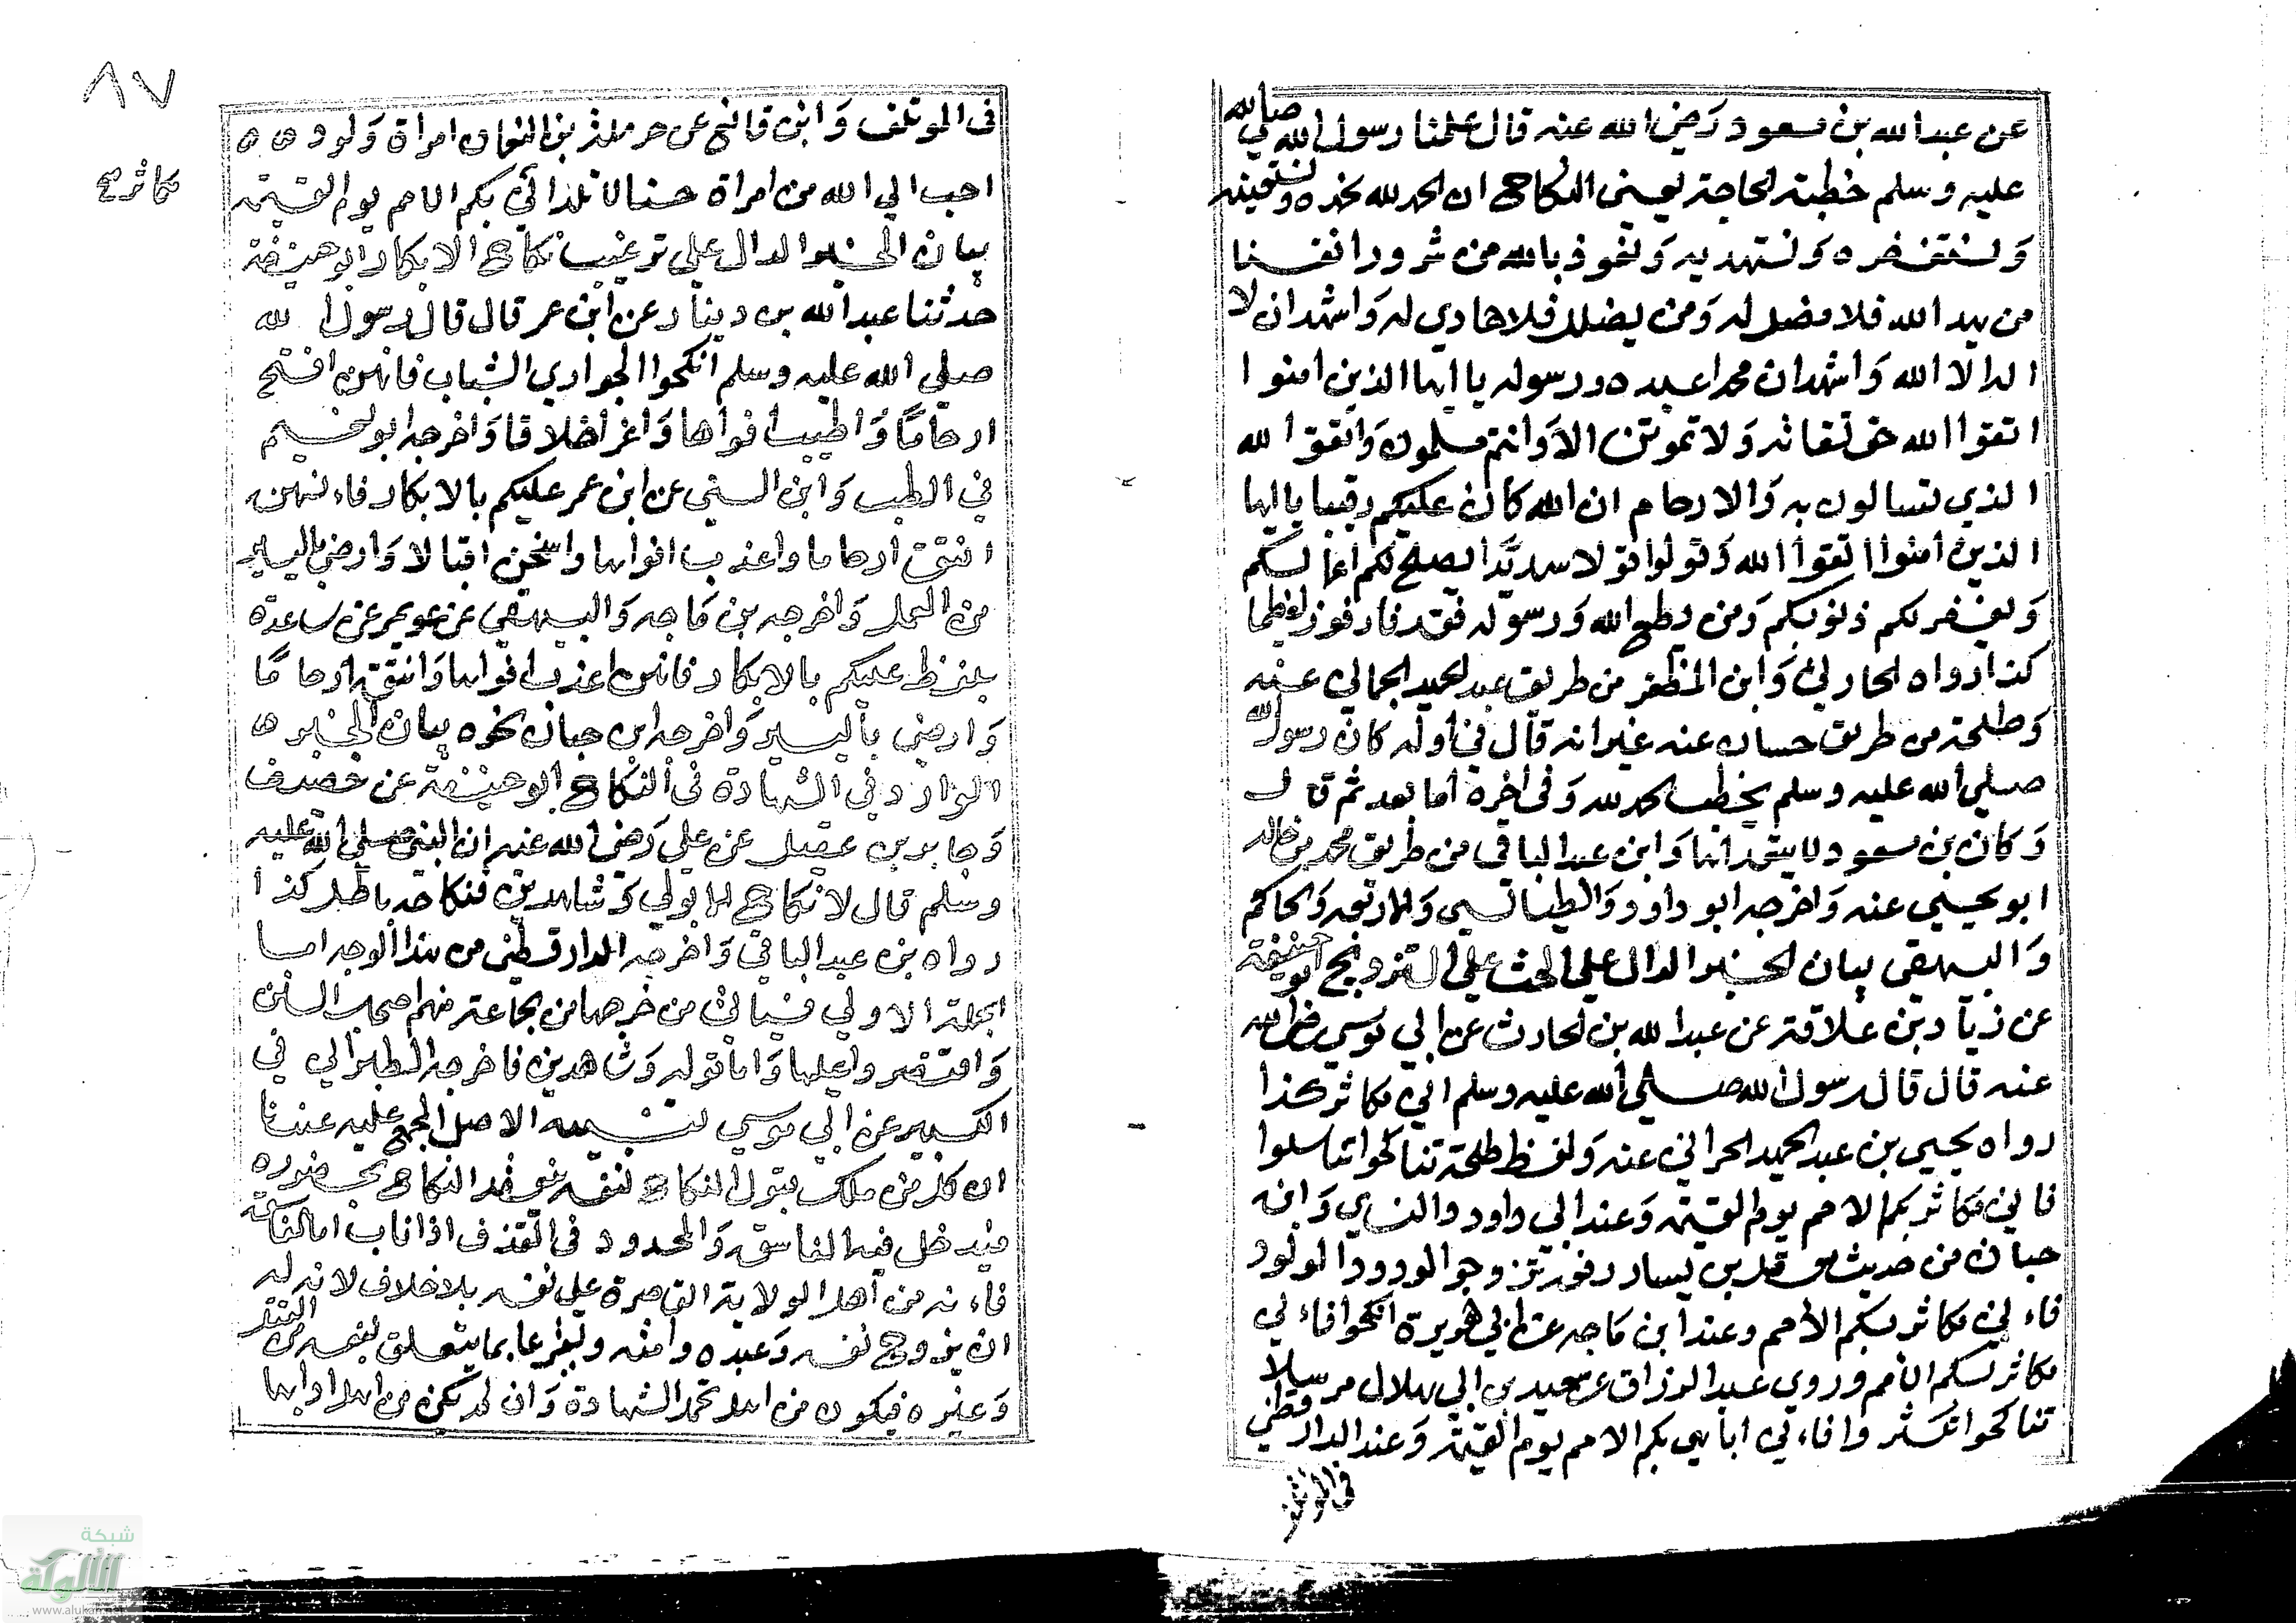 عن عبد الله بن مسعود رضي الله عنه قال علمنا رسول الله صلي الله
عليه وسلم خطبة الحاجة يعني النكاح ان الحمد لله نحمده ونستعينه
ونستغفره ونستهديه ونعوذ بالله من شرور انفسنا
من يهد الله فلا مضل له ومن يضلل فلا هادي له واشهد ان لا
اله الا الله واشهدان محمدا عبده ورسوله يا ايها الذين امنوا
اتقوا الله حق تقاته ولا تموتن الا وانتم مسلمون واتقوا الله
الذي تسالون به والارحام ان الله كان عليكم رقيبا ياايها
الذين امنوا اتقوا الله وقولوا قولا سديدا يصلح لكم اعمالكم
ويغفر لكم ذنوبكم ومن يطع الله ورسوله فقد فاز فوزا عظيما
كذا رواه الحارثي وابن المظفر من طريق عبد الحميد الحمالي عنه
وطلحة من طريق حسان عنه غير انه قال في اوله كان رسول الله
صلي الله عليه وسلم يخطب الحمد لله وفي اخره اما بعد ثم قال
وكان بن مسعود لا يتقدانها وابن عبد الباقي من طريق محمد بن خالد
ابو يحيي عنه واخرجه ابو داود والطيالسي والاربعة والحاكم
والبيهقي بيان الخبر الدال علي الحث علي التزويج ابو حنيفة
عن زياد بن علاقة عن عبد الله بن الحارث عن ابي موسي رضي الله
عنه قال قال رسول الله صلي الله عليه وسلم اني مكاثر كذا
رواه يحيي بن عبد الحميد الحراني عنه ولفظ طلحة تناكحوا تناسلوا
فاني مكاثر بكم الامم يوم القيمة وعند ابي داود والنساي وابن
حبان من حديث معقل بن يسار رفعه تزوجوا الودود الولود
فاءني مكاثر بكم الامم وعند ابن ماجه عن ابي هريرة انكحوا فاءني
مكاثر بكم الامم وروي عبد الرزاق عن سعيد بن ابي هلال مرسلا
تناكحوا تكثروا فاءني اباهي بكم الامم يوم القيمة وعند الدارقطني
في الموتلف
٨٧
في الموتلف وابن قانع عن حرملة بن النعمان امراة ولود
احب الي الله من امراة حسنا لا تلد اني بكم الامم يوم القيمة
مكاثر صح
بيان الخبر الدال علي ترغيب نكاح الابكار ابو حنيفة
حدثنا عبد الله بن دينار عن ابن عمر قال قال رسول الله
صلي الله عليه وسلم انكحوا الجواري الشباب فانهن افتح
ارحاما واطيب افواها واغر اخلاقا واخرجه ابو نعيم
في الطب وابن السني عن ابن عمر عليكم بالابكار فاءنهن
انتق ارحاما واعذب افواها واسخن اقبالا وارضي باليسير
من العمل واخرجه بن ماجه والبيهقي عن عويمر عن ساعدة
بلفظ عليكم بالابكار فانهن اعذب افواها وانتق ارحاما
وارضي باليسير واخرجه ابن حبان نحوه بيان الخبر
الوارد في الشهادة في النكاح ابو حنيفة عن خصيف
وجابر بن عقيل عن علي رضي الله عنه ان النبي صلي الله عليه
وسلم قال لا نكاح الا بولي وشاهدين فنكاحه باطل كذا
رواه بن عبد الباقي واخرجه الدارقطني من هذا الوجه اما
الجملة الاولي فسياتي من خرجها من جماعة منهم اصحاب السنن
واما قوله وشاهدين فاخرجه الطبراني في
الكبير عن ابي موسي تنبيه الاصل المجمع عليه عندنا
ان كل من ملك قبول النكاح لنفسه ينعقد النكاح بحضوره
فيدخل فيه الفاسق والمحدود في القذف اذا تاب
فاءنه من اهل الولاية القاصرة علي نفسه بلا خلاف لانه له
ان يزوج نفسه وعبده وامته ويقر بما يتعلق بنفسه من القتل
وغيره فيكون من اهل تحمل الشهادة وان لم يكن من اهل ادايها
شبكة
الألوكة
www.alukah.net